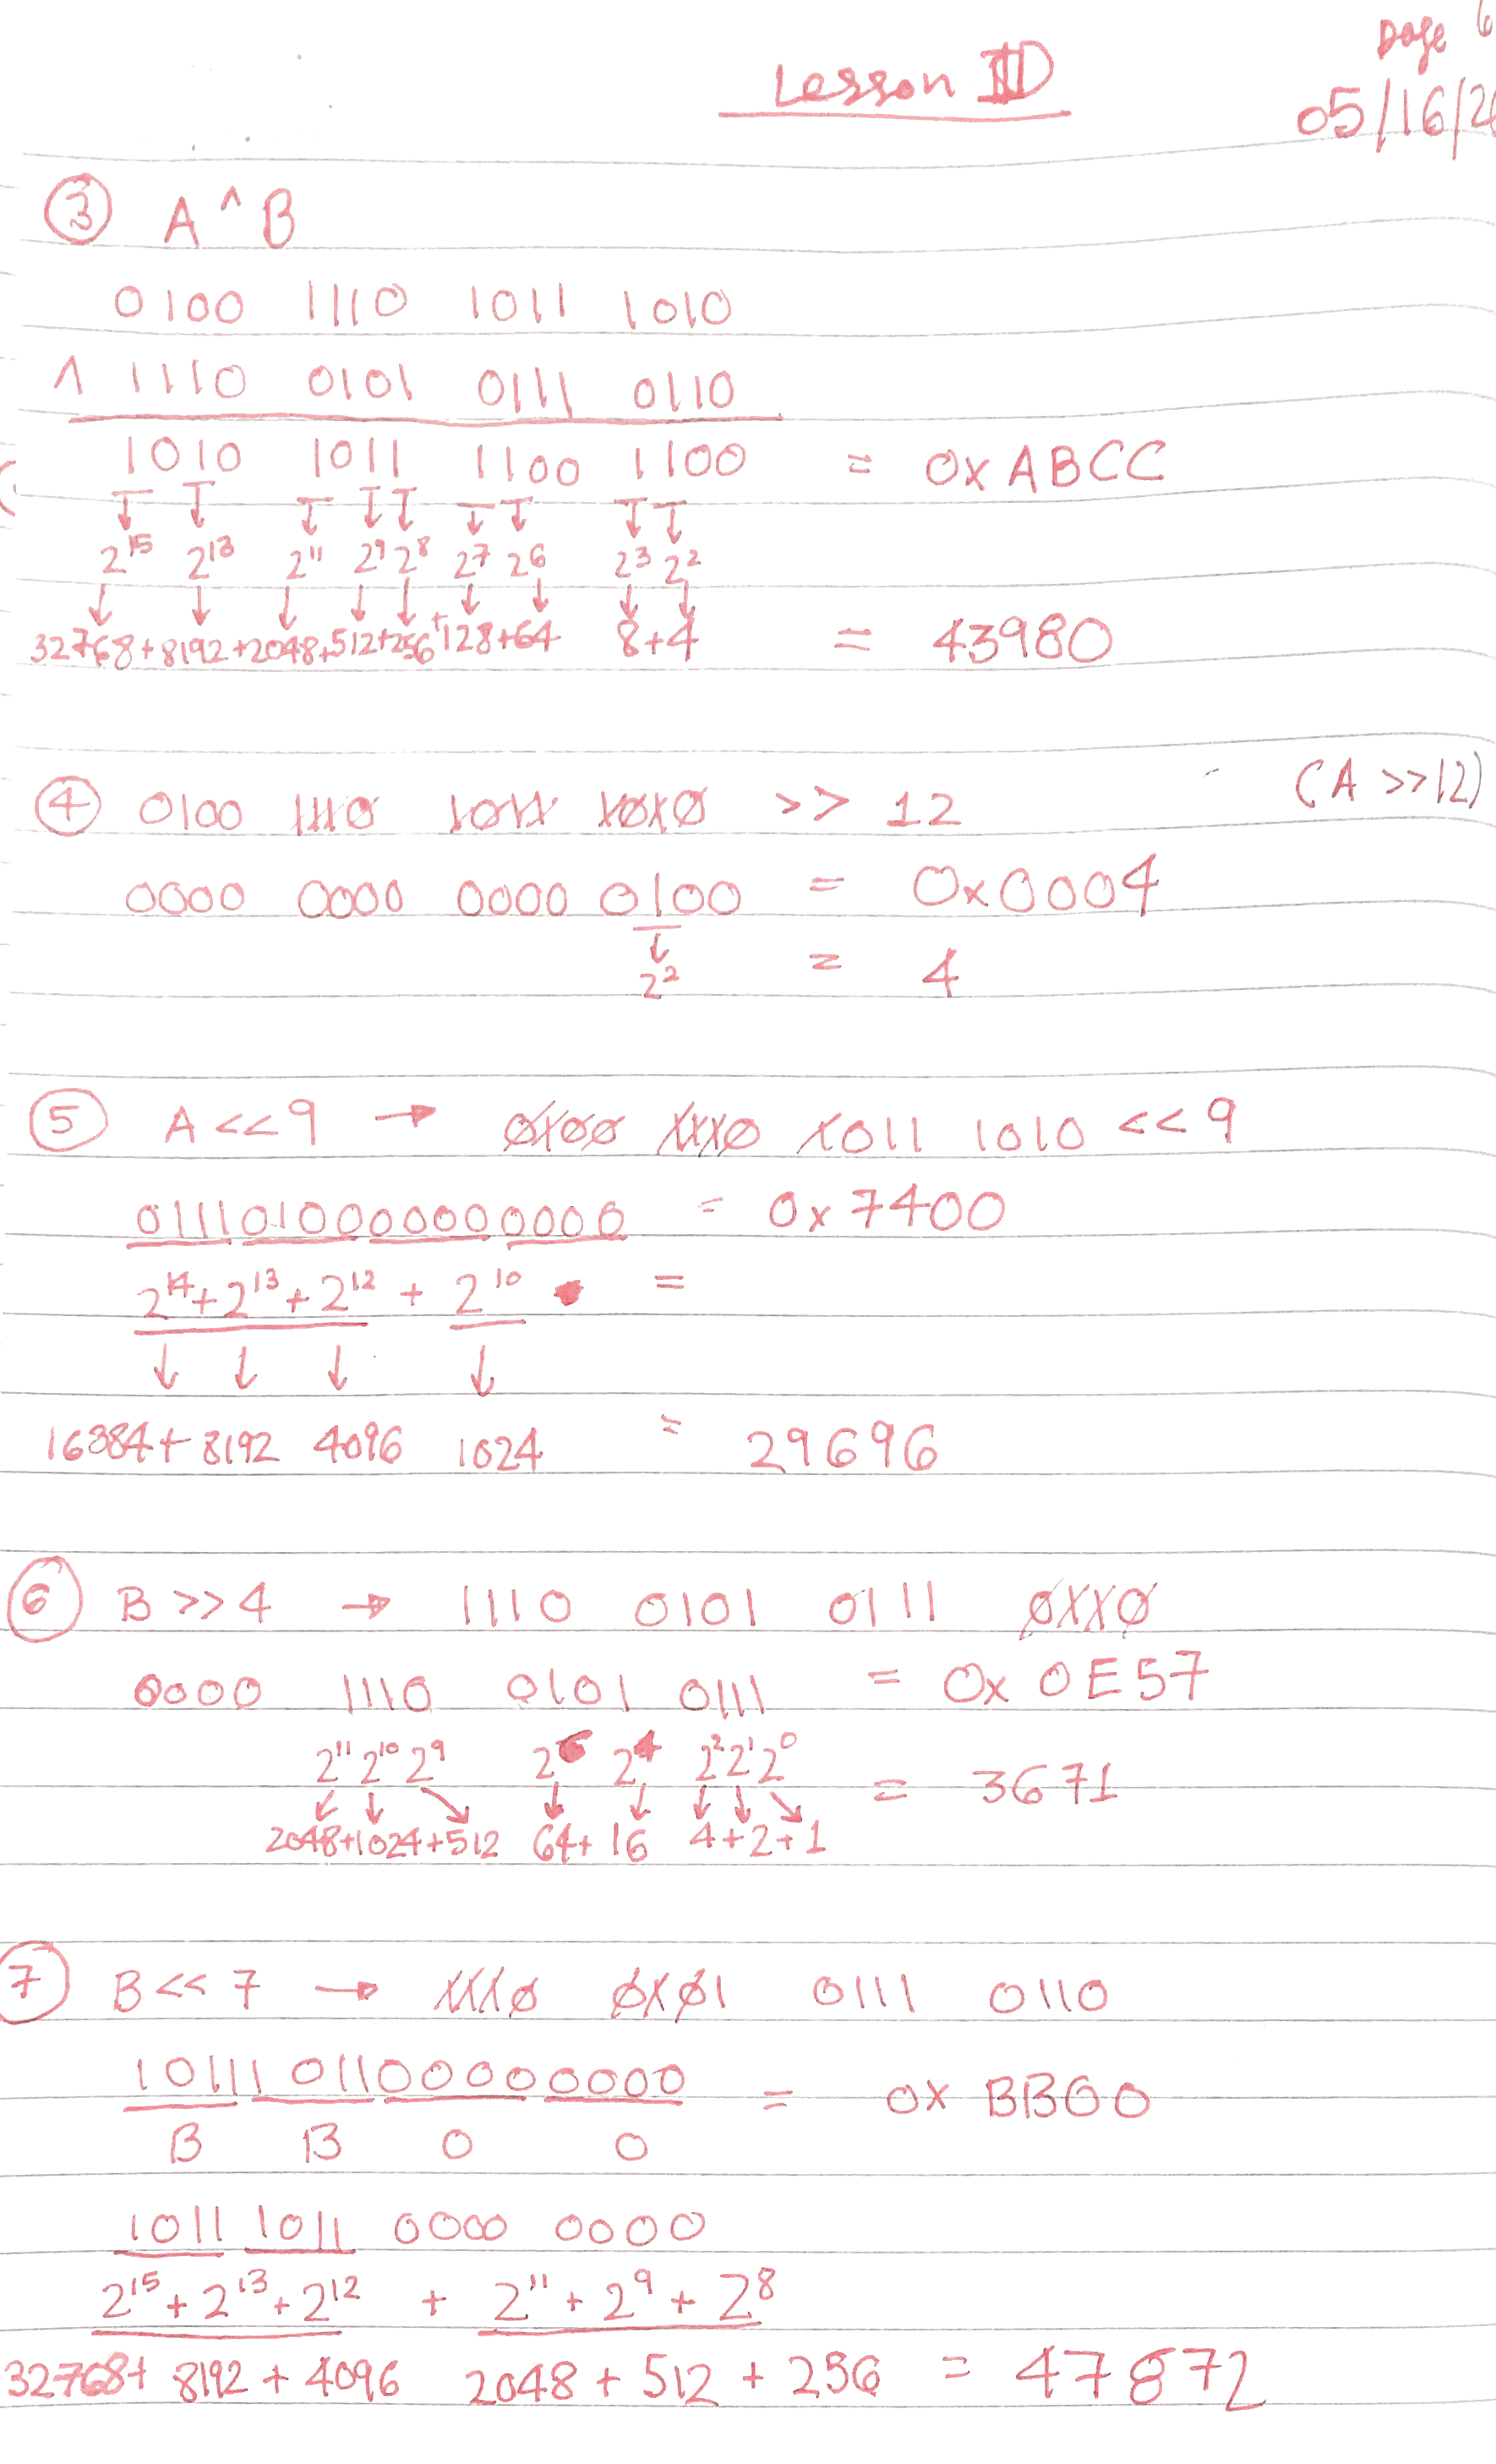 Page 6
Lesson III D
05/16/2
③ A ^ B
0100 1110 1011 1010
^ 1110 0101 0111 0110
1010 1011 1100 1100 = 0x ABCC
2^15 2^13 2^11 2^9 2^8 2^7 2^6 2^3 2^2
32768+8192+2048+512+256+128+64 8+4 = 43980
④ 0100 1110 1011 1010 >> 12 (A >>12)
0000 0000 0000 0100 = 0x0004
2^2 = 4
⑤ A <<9 → 0100 1110 1011 1010 <<9
0111010000000000 = 0x7400
2^14+2^13+2^12 + 2^10 =
16384+8192 4096 1024 = 29696
⑥ B >>4 → 1110 0101 0111 0110
0000 1110 0101 0111 = 0x 0E57
2^11 2^10 2^9 2^6 2^4 2^2 2^1 2^0 = 3671
2048+1024+512 64+16 4+2+1
⑦ B<<7 → 1110 0101 0111 0110
1011101100000000 = 0x BB00
B B 0 0
1011 1011 0000 0000
2^15+2^13+2^12 + 2^11+2^9+2^8
32768+ 8192 + 4096 2048 + 512 + 256 = 47872